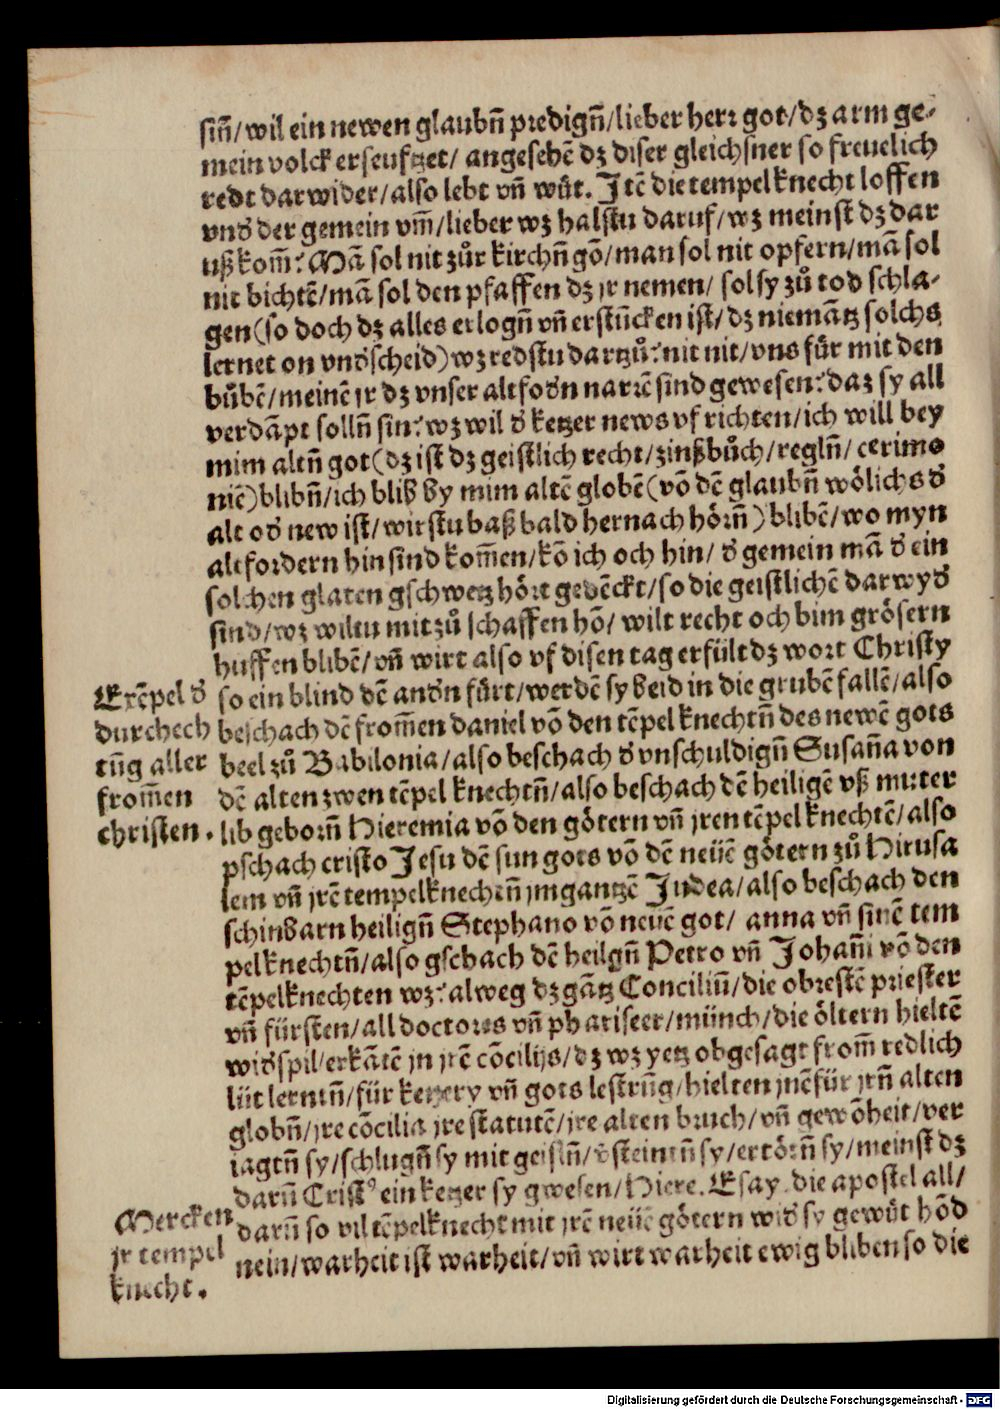 sin̄/wil ein newen glaubn̄ predign̄/lieber herꝛ got/dz arm ge⸗
mein volck erseuftzet/ angesehē dz diser gleichsner so freuelich
redt darwider/also lebt vn̄ wůt. Itē die tempelknecht loffen
vnd' der gemein vm̄/lieber wz halstu daruf/wz meinst dz dar
uß kom̄? Mā sol nit zůr kirchn̄ gō/man sol nit opfern/mā sol
nit bichtē/mā sol den pfaffen dz jr nemen/ sol sy zů tod schla⸗
gen(so doch dz alles erlogn̄ vn̄ erstūcken ist/dz niemātz solchs
lernet on vnd'scheid)wz redstu dartzů? nit nit/vns für mit den
bůbē/meinē jr dz vnser altfod'n narrē sind gewesen? daz sy all
verdāpt solln̄ sin? wz wil d' ketzer news vf richten/ich will bey
mim altn̄ got(dz ist dz geistlich recht/zinßbůch/regln̄/ cerimo
niē)blibn̄/ich blib by mim altē globē(vō dē glaubn̄ wölichs d'
alt od' new ist/wirstu baß bald hernach hörn̄)blibē/wo myn
altfordern hin sind kom̄en/kō ich och hin/ d' gemein mā d' ein
solchen glaten gschwetz hört gedēckt/so die geistlichē darwyd'
sind/wz wiltu mit zů schaffen hō/ wilt recht och bim grösern
huffen blibē/vn̄ wirt also vf disen tag erfült dz wort Christy
so ein blind dē and'n fürt/werdē sy beid in die grubē fallē/also
beschach dē from̄en daniel vō den tēpel knechtn̄ des newē gots
beel zů Babilonia/also beschach d' vnschuldign̄ Susan̄a von
dē alten zwen tēpel knechtn̄/also beschach dē heiligē vß muter
lib geborn̄ Hieremia vō den götern vn̄ jren tēpel knechtē/also
pschach cristo Jesu dē sun gots vō dē neüē götern zů Hirusa
lem vn̄ jrē tempelknechtn̄ jm gantzē Judea/also beschach den
schinbarn heilign̄ Stephano vō neüē got/ anna vn̄ sinē tem
pelknechtn̄/also gschach dē heilgn̄ Petro vn̄ Johan̄i vō den
tēpelknechten wz? alweg dz gātz Conciliū/die obrestē priester
vn̄ fürsten/all doctores vn̄ phariseer/münch/die öltern hieltē
wid'spil/erkātē jn jrē cōcilijs/dz wz yetz obgesagt from̄ redlich
lüt lerntn̄/für ketzery vn̄ gots lestrūg/hielten jnē für jrn̄ alten
globn̄/jre cōcilia jre statutē/jre alten bruch/vn̄ gewōheit/ver
iagtn̄ sy/schlugn̄ sy mit geisln̄/v'steintn̄ sy/ertötn̄ sy/meinst dz
darū Cristꝰ ein ketzer sy gwesen/Hiere. Esay. die apostel all/
darū so vil tēpelknecht mit jrē neüē götern wid' sy gewůt hōd
nein/warheit ist warheit/vn̄ wirt warheit ewig bliben so die
Exēpel d'
durchech
tūg aller
from̄en
christen.
Mercken
jr tempel
knecht.
Digitalisierung gefördert durch die Deutsche Forschungsgemeinschaft - DFG